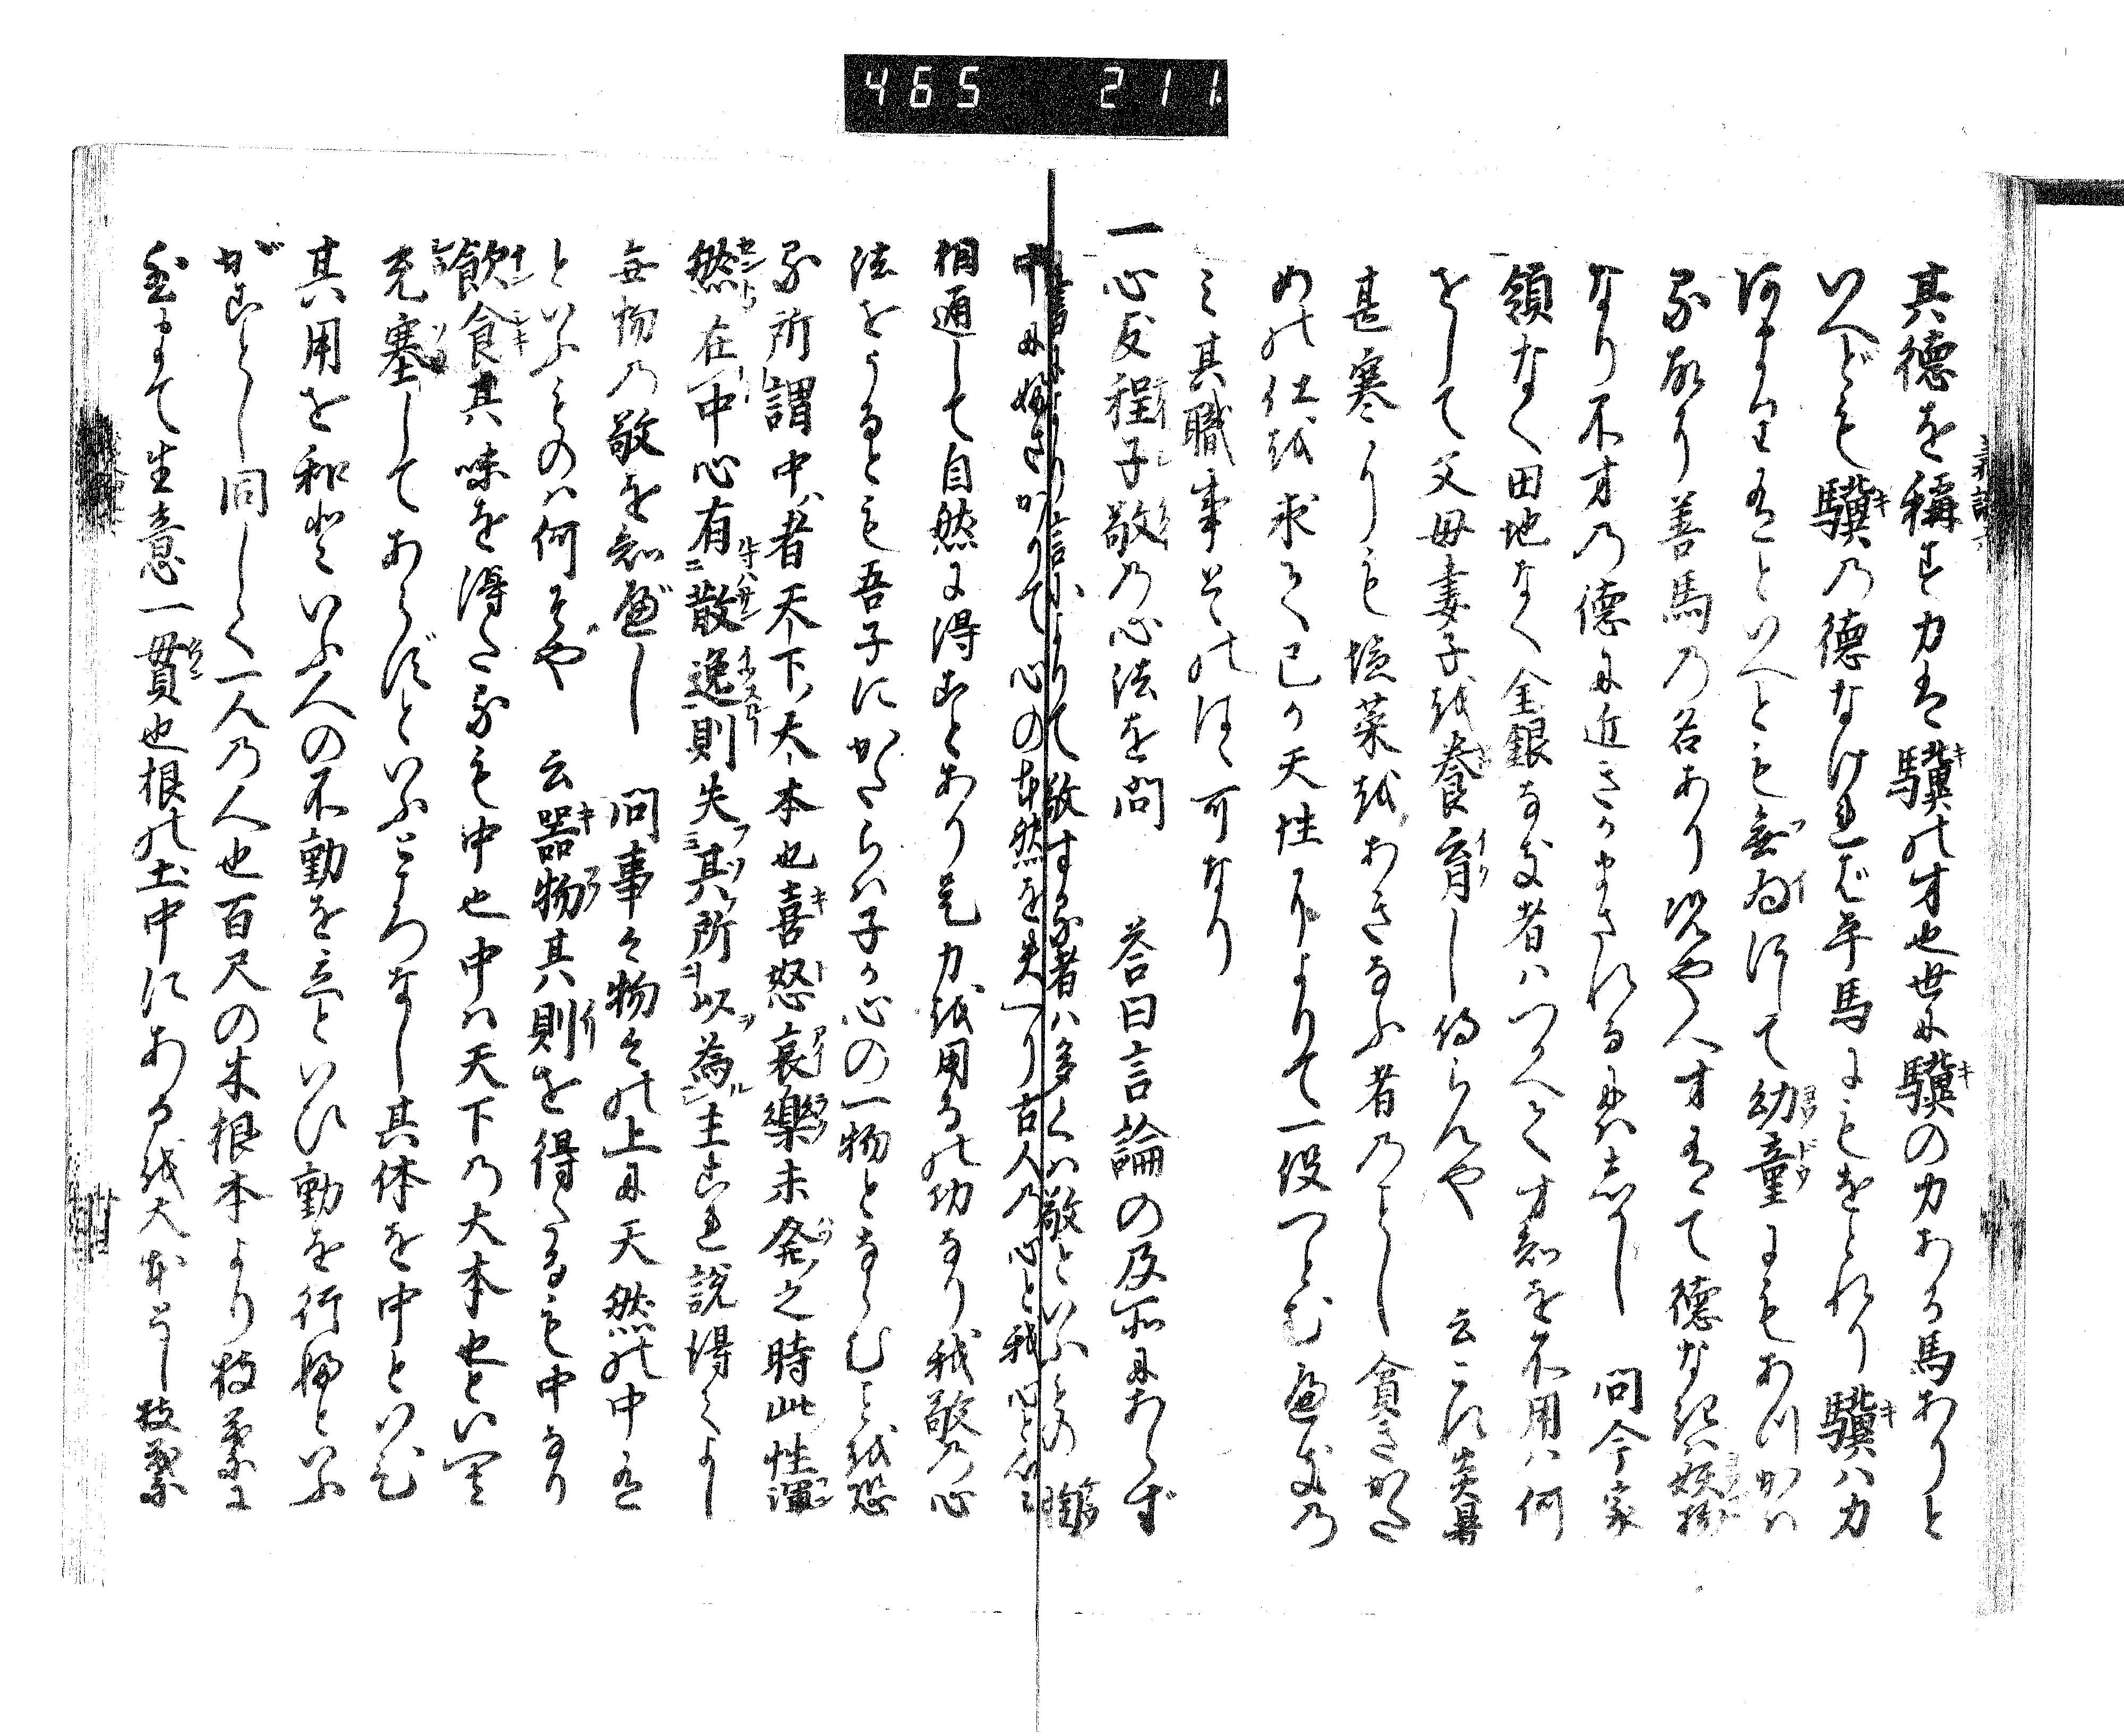 465 211
其徳を稱す力は驥の才也世に驥の力ある馬ありと
いへども驥の徳なければ平馬にもをとれり驥ハ力
有といへとも無為にして幼童にも
る故なり善馬の名あり況や人才有て徳なきハ妖物
なり不才の徳に近きかまされるにハしかし 問今家
領なく田地なく金銀なき者ハつくへく才知を不用ハ何
をして父母妻子を養育し侍らんや 云これ炎暑
甚寒にも塩菜をあきなふ者のことし貪きかた
めの仕を求て己か天性によりて一役つとむ
其職事
一心友程子敬の心法を問 答曰言論の及所にあらず
書によりて敬する者ハ多くハ敬といふもの胸
中にふさかりて心の本然を失へり古人の心と我心と
相通して自然に得ことあり是力を用るの功なり我敬の心
法をうるとも吾子にかたらハ子か心の一物とならむことを恐
る所謂中ハ者天下ノ大本也喜怒哀樂未発之時此性渾
然在中心有散逸則失其所以為主これ説得てよし
無物の敬を知べし 問事々物々の上に天然の中有
といふものハ何そや 云器物其則を得たるも中なり
飲食其味を得たるも中也中ハ天下の大本也といへり
充塞してあらずといふところなし其体を中といひ
其用を和といふ人の不動を立といひ動を行歩といふ
がことし同しく一人の人也百尺の木根本より枝葉に
至まて生意一貫也根の土中にあるを大本とし枝葉